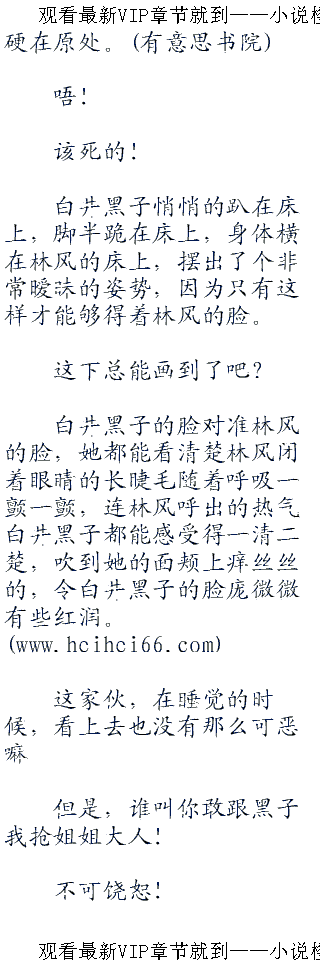 观看最新VIP章节就到——小说榜
硬在原处。(有意思书院)
唔！
该死的！
白井黑子悄悄的趴在床
上，脚半跪在床上，身体横
在林风的床上，摆出了个非
常暧昧的姿势，因为只有这
样才能够得着林风的脸。
这下总能画到了吧？
白井黑子的脸对准林风
的脸，她都能看清楚林风闭
着眼睛的长睫毛随着呼吸一
颤一颤，连林风呼出的热气
白井黑子都能感受得一清二
楚，吹到她的面颊上痒丝丝
的，令白井黑子的脸庞微微
有些红润。
(www.hcihci66.com)
这家伙，在睡觉的时
候，看上去也没有那么可恶
嘛
但是，谁叫你敢跟黑子
我抢姐姐大人！
不可饶恕！
观看最新VIP章节就到——小说